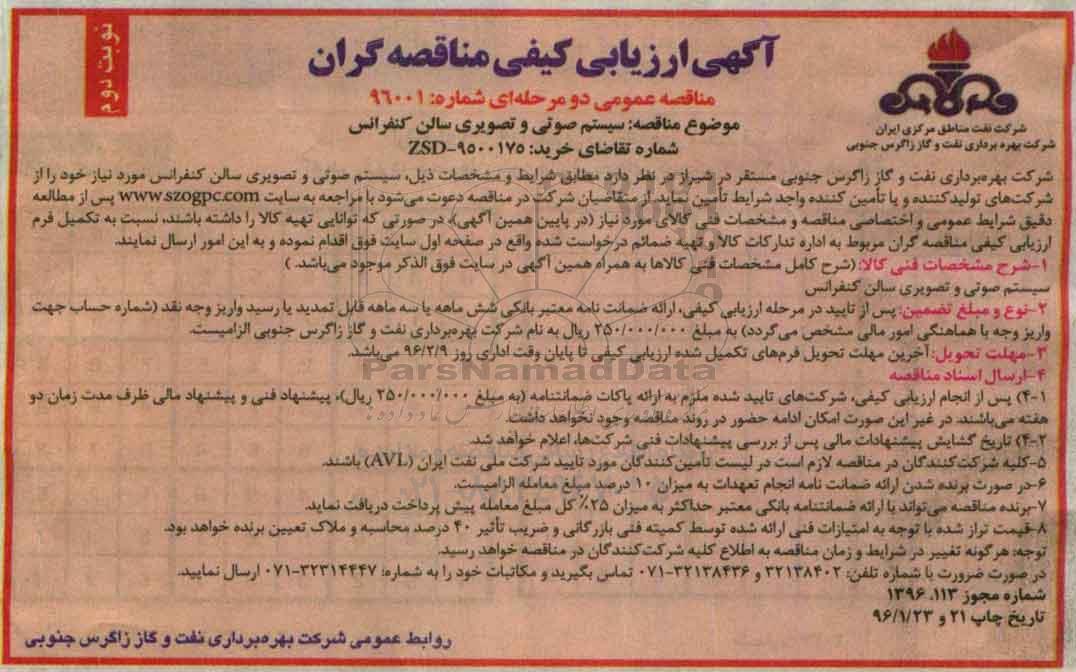 نوبت دوم
آگهی ارزیابی کیفی مناقصه گران
مناقصه عمومی دو مرحله‌ای شماره: ۹۶۰۰۱
موضوع مناقصه: سیستم صوتی و تصویری سالن کنفرانس
شماره تقاضای خرید: ZSD-۹۵۰۰۱۷۵
شرکت نفت مناطق مرکزی ایران
شرکت بهره برداری نفت و گاز زاگرس جنوبی
شرکت بهره‌برداری نفت و گاز زاگرس جنوبی مستقر در شیراز در نظر دارد مطابق شرایط و مشخصات ذیل، سیستم صوتی و تصویری سالن کنفرانس مورد نیاز خود را از
شرکت‌های تولیدکننده و یا تأمین کننده واجد شرایط تأمین نماید. از متقاضیان شرکت در مناقصه دعوت می‌شود با مراجعه به سایت www.szogpc.com پس از مطالعه
دقیق شرایط عمومی و اختصاصی مناقصه و مشخصات فنی کالای مورد نیاز (در پایین همین آگهی)، در صورتی که توانایی تهیه کالا را داشته باشند، نسبت به تکمیل فرم
ارزیابی کیفی مناقصه گران مربوط به اداره تدارکات کالا و تهیه ضمائم درخواست شده واقع در صفحه اول سایت فوق اقدام نموده و به این امور ارسال نمایند.
۱-شرح مشخصات فنی کالا: (شرح کامل مشخصات فنی کالاها به همراه همین آگهی در سایت فوق الذکر موجود می‌باشد.)
سیستم صوتی و تصویری سالن کنفرانس
۲-نوع و مبلغ تضمین: پس از تایید در مرحله ارزیابی کیفی، ارائه ضمانت نامه معتبر بانکی شش ماهه یا سه ماهه قابل تمدید یا رسید واریز وجه نقد (شماره حساب جهت
واریز وجه با هماهنگی امور مالی مشخص می‌گردد) به مبلغ ۲۵۰/۰۰۰/۰۰۰ ریال به نام شرکت بهره‌برداری نفت و گاز زاگرس جنوبی الزامیست.
۳-مهلت تحویل: آخرین مهلت تحویل فرم‌های تکمیل شده ارزیابی کیفی تا پایان وقت اداری روز ۹۶/۲/۹ می‌باشد.
۴-ارسال اسناد مناقصه
۴-۱) پس از انجام ارزیابی کیفی، شرکت‌های تایید شده ملزم به ارائه پاکات ضمانتنامه (به مبلغ ۲۵۰/۰۰۰/۰۰۰ ریال)، پیشنهاد فنی و پیشنهاد مالی ظرف مدت زمان دو
هفته می‌باشند. در غیر این صورت امکان ادامه حضور در روند مناقصه وجود نخواهد داشت.
۴-۲) تاریخ گشایش پیشنهادات مالی پس از بررسی پیشنهادات فنی شرکت‌ها، اعلام خواهد شد.
۵-کلیه شرکت‌کنندگان در مناقصه لازم است در لیست تأمین‌کنندگان مورد تایید شرکت ملی نفت ایران (AVL) باشند.
۶-در صورت برنده شدن ارائه ضمانت نامه انجام تعهدات به میزان ۱۰ درصد مبلغ معامله الزامیست.
۷-برنده مناقصه می‌تواند با ارائه ضمانتنامه بانکی معتبر حداکثر به میزان ۲۵٪ کل مبلغ معامله پیش پرداخت دریافت نماید.
۸-قیمت تراز شده با توجه به امتیازات فنی ارائه شده توسط کمیته فنی بازرگانی و ضریب تأثیر ۴۰ درصد محاسبه و ملاک تعیین برنده خواهد بود.
توجه: هرگونه تغییر در شرایط و زمان مناقصه به اطلاع کلیه شرکت‌کنندگان در مناقصه خواهد رسید.
در صورت ضرورت با شماره تلفن: ۳۲۱۳۸۴۰۲ و ۳۲۱۳۸۴۳۶-۰۷۱ تماس بگیرید و مکاتبات خود را به شماره: ۳۲۳۱۴۴۴۷-۰۷۱ ارسال نمایید.
شماره مجوز ۱۱۳، ۱۳۹۶
تاریخ چاپ ۲۱ و ۹۶/۱/۲۳
روابط عمومی شرکت بهره‌برداری نفت و گاز زاگرس جنوبی
ParsNamadData